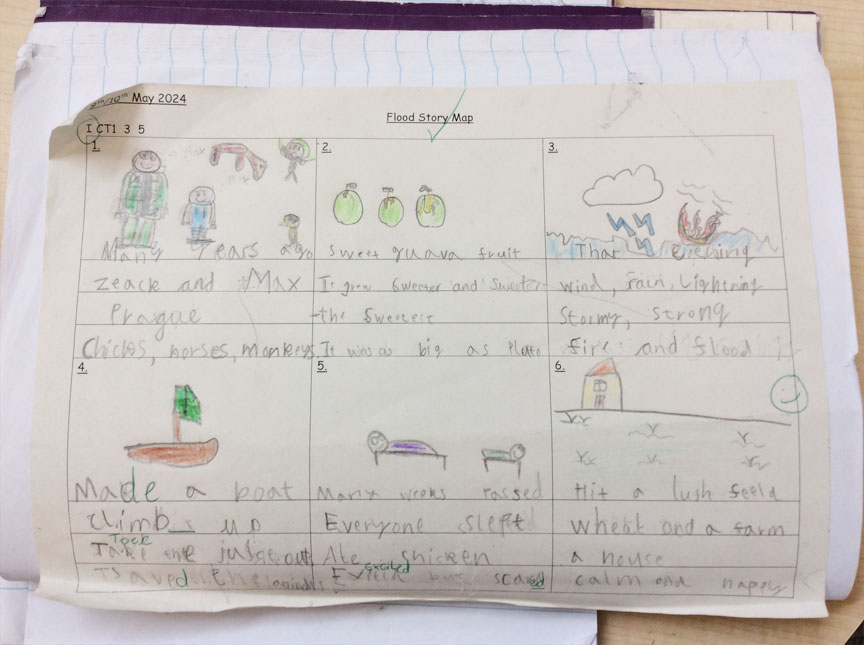 9th/10th May 2024
Flood Story Map
I CT1 3 5
1.
Many years ago
zeack and Max
Prague
Chicks, horses, monkeys
2.
Sweet guava fruit
It grew Sweeter and Sweeter
the Sweetest
It was as big as
3.
That evening
wind, rain, Lightning
Stormy, strong
fire and flood
4.
Made a boat
climb up
Took
Take the out
Saved the
5.
Many weeks passed
Everyone slept
Ate chicken
excited
but scared
6.
Hit a lush feeld
wheat and a farm
a house
calm and happy